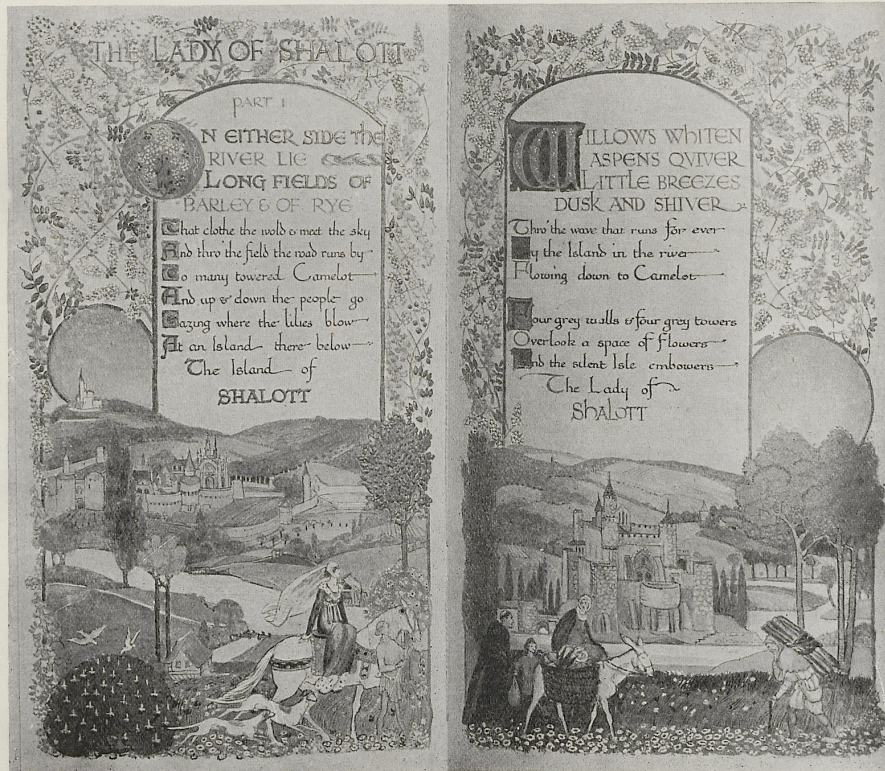 THE LADY OF SHALOTT
PART I
ON EITHER SIDE THE
RIVER LIE
LONG FIELDS OF
BARLEY & OF RYE
That clothe the wold & meet the sky
And thro' the field the road runs by
To many towered Camelot
And up & down the people go
Gazing where the lilies blow
At an Island there below
The Island of
SHALOTT
WILLOWS WHITEN
ASPENS QVIVER
LITTLE BREEZES
DUSK AND SHIVER
Thro' the wave that runs for ever
By the Island in the river
Flowing down to Camelot
Four grey walls & four grey towers
Overlook a space of flowers
And the silent Isle embowers
The Lady of
SHALOTT